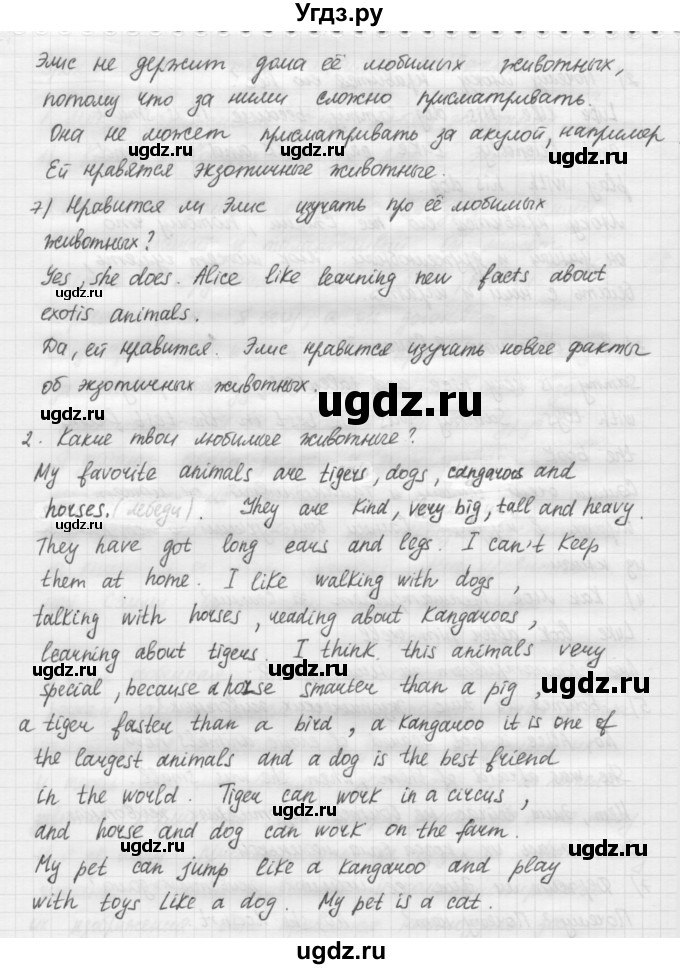 Угдз.ру
Элис не держит дома её любимых животных,
потому что за ними сложно присматривать.
Она не может присматривать за акулой, например
Ей нравятся экзотичные животные.
7) Нравится ли Элис изучать про её любимых
животных?
Yes, she does. Alice like learning new facts about
exotis animals.
Да, ей нравится. Элис нравится изучать новые факты
об экзотичных животных.
2. Какие твои любимые животные?
My favorite animals are tigers, dogs, cangaroos and
horses. (лебеди). They are kind, very big, tall and heavy.
They have got long ears and legs. I can't keep
them at home. I like walking with dogs,
talking with horses, reading about kangaroos,
learning about tigers. I think this animals very
special, because a horse smarter than a pig,
a tiger faster than a bird, a kangaroo it is one of
the largest animals and a dog is the best friend
in the world. Tiger can work in a circus,
and horse and dog can work on the farm.
My pet can jump like a kangaroo and play
with toys like a dog. My pet is a cat.
ugdz.ru